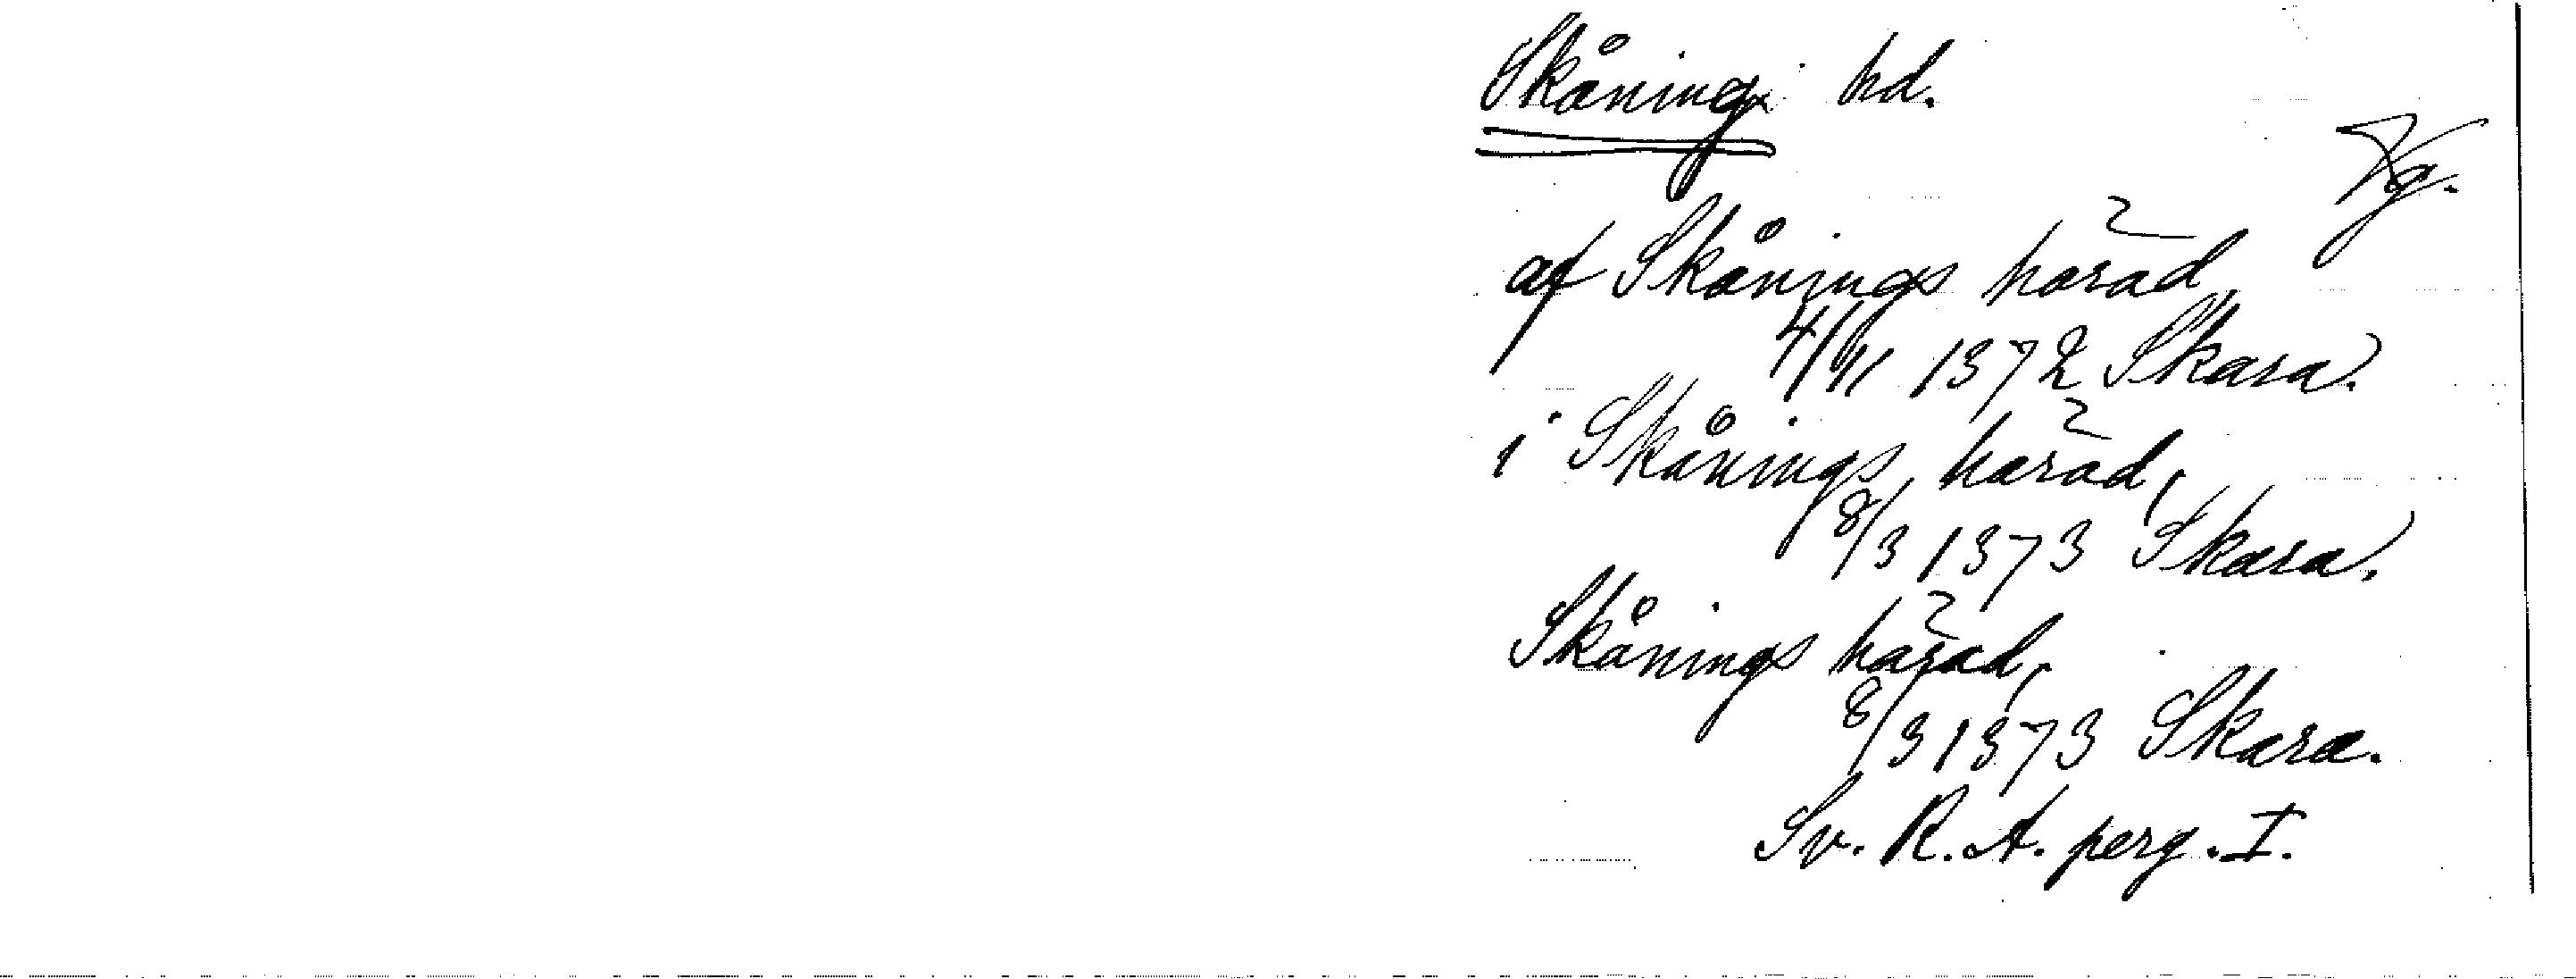 Skånings hd.
Vg.
af Skånings härad
4/11 1372 Skara.
i Skånings härad,
8/3 1373 Skara.
Skånings härad,
8/3 1373 Skara.
Sv. R. A. perg. I.